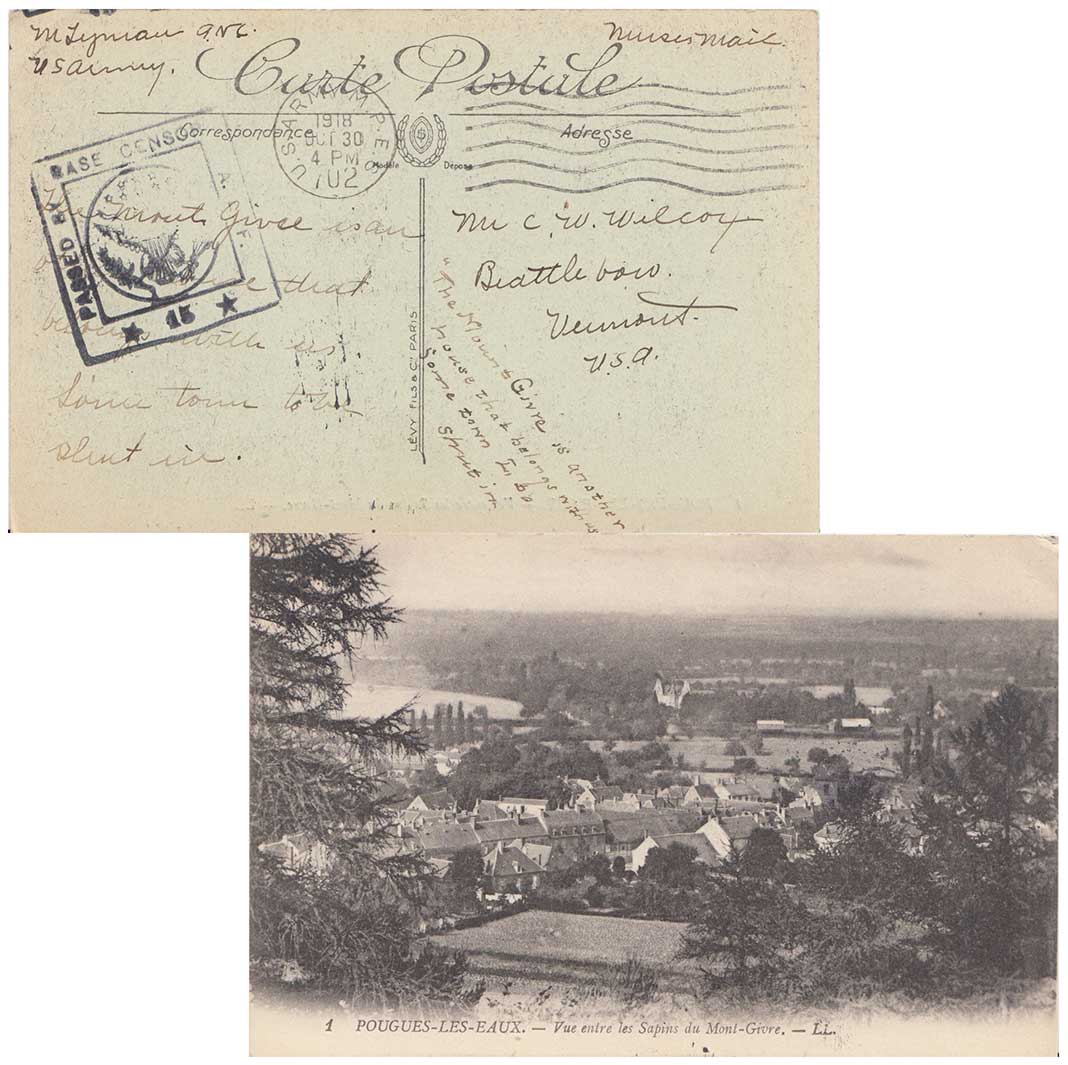 M Lyman A.N.C.
US Army.
Nurses Mail.
Carte Postale
Correspondance
Adresse
Modèle Déposé
U.S. ARMY M.P.E.
1918
OCT 30
4 PM
702
PASSED BY BASE CENSOR
★ 15 ★
The Mont Givre is an
that
belongs with us
Some town to be
shut in.
Mr C. W. Wilcox
Brattleboro.
Vermont.
U.S.A.
LÉVY FILS & Cie PARIS
"The Mount Givre is another
house that belongs with us
Some town to be
shut in
1 POUGUES-LES-EAUX. — Vue entre les Sapins du Mont-Givre. — LL.